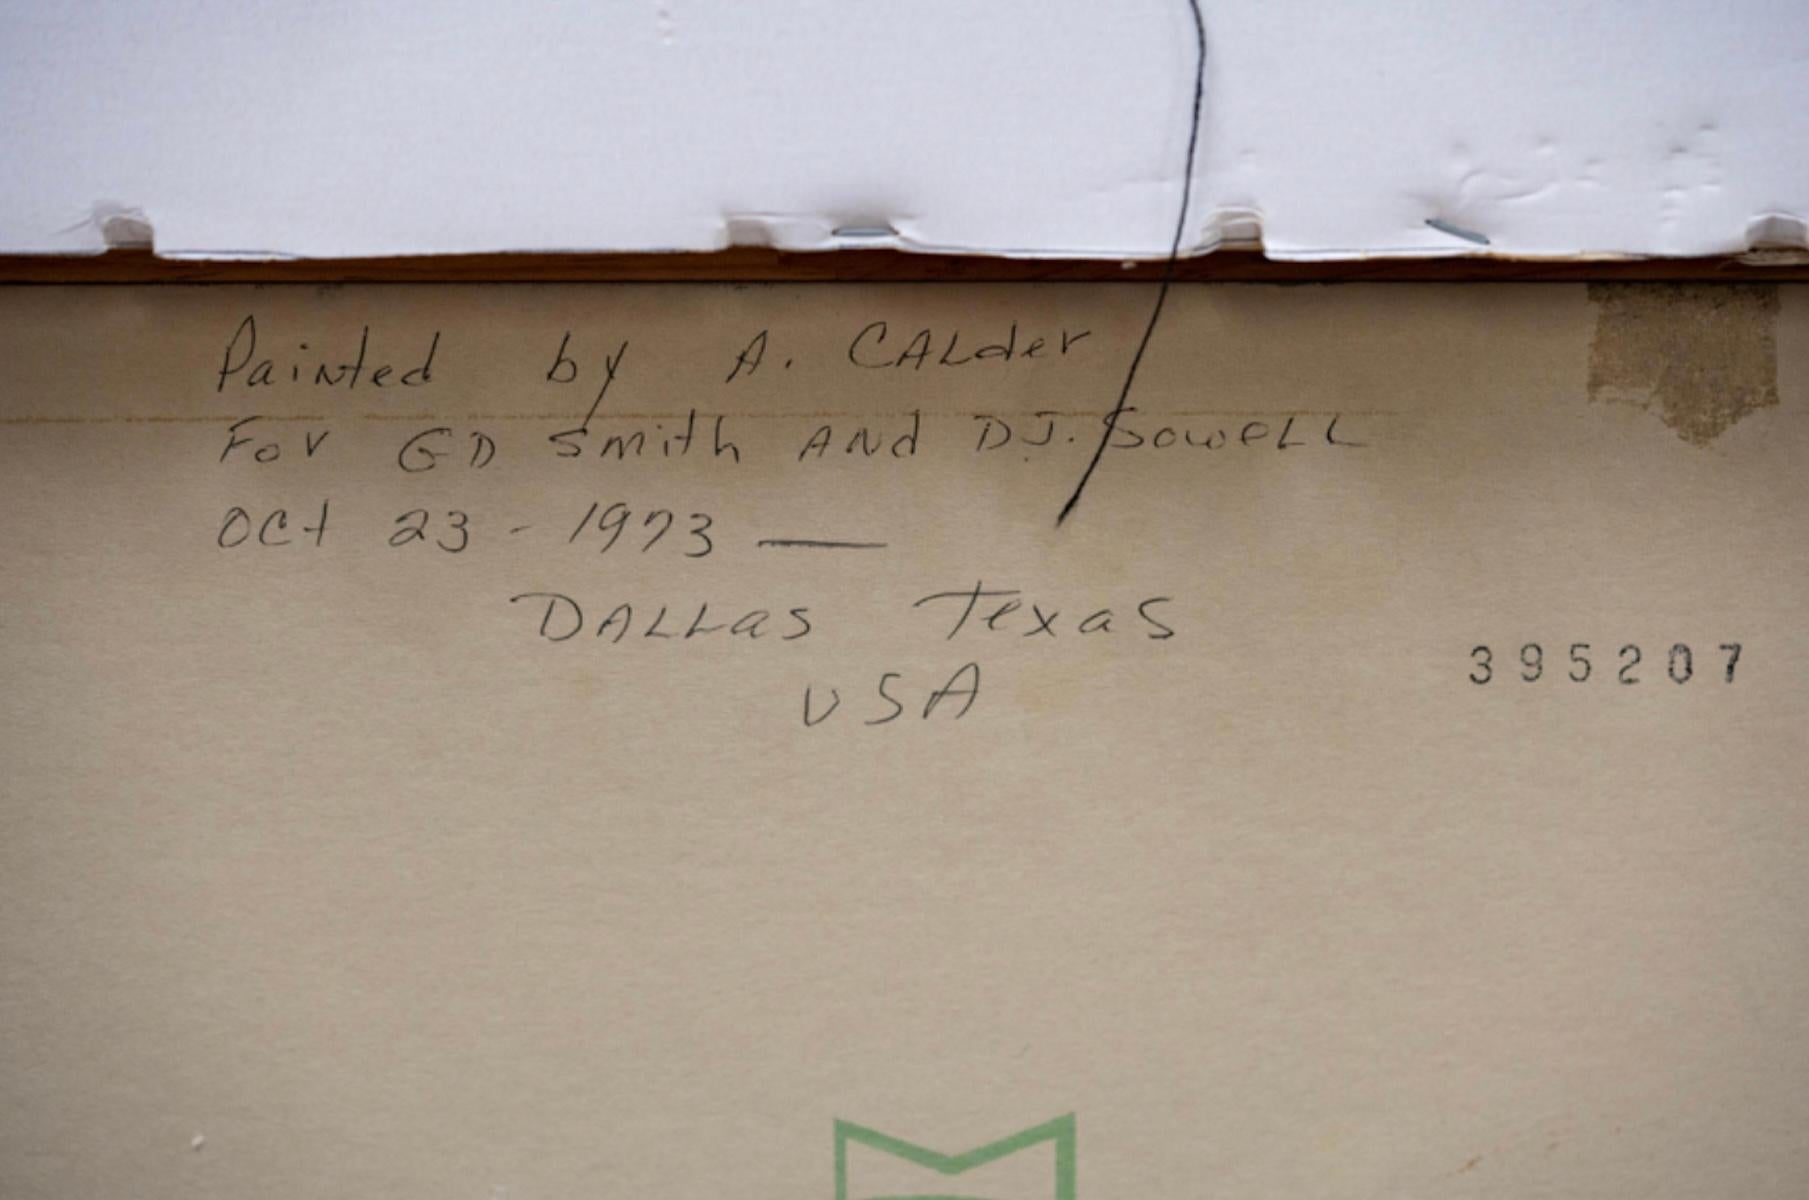 Painted by A. CALder
For GD Smith AND DJ. SowELL
Oct 23 - 1973 —
DALLas Texas
USA
395207